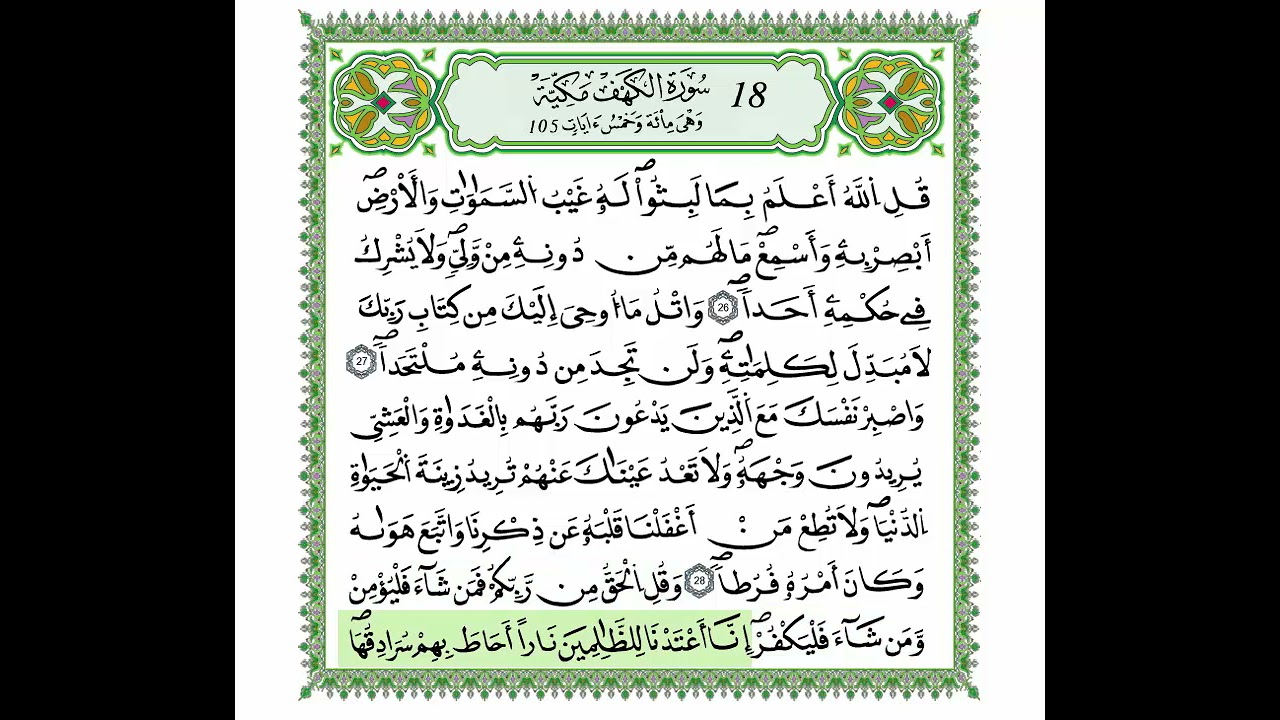 سُورَةُ الْكَهْفِ مَكِّيَّةٌ 18
وَهْيَ مِائَةٌ وَخَمْسُ ءَايَاتٍ 105
قُلِ اِ۬للَّهُ أَعْلَمُ بِمَا لَبِثُواْۖ لَهُۥ غَيْبُ اُ۬لسَّمَٰوَٰتِ وَالْأَرْضِۖ
أَبْصِرْ بِهِۦ وَأَسْمِعْۖ مَا لَهُم مِّن دُونِهِۦ مِنْ وَّلِيّٖۖ وَلَا يُشْرِكُ
فِے حُكْمِهِۦٓ أَحَداٗۖ 26 وَاتْلُ مَآ أُوحِيَ إِلَيْكَ مِن كِتَابِ رَبِّكَ
لَا مُبَدِّلَ لِكَلِمَٰتِهِۦۖ وَلَن تَجِدَ مِن دُونِهِۦ مُلْتَحَداٗۖ 27
وَاصْبِرْ نَفْسَكَ مَعَ اَ۬لَّذِينَ يَدْعُونَ رَبَّهُم بِالْغَدَوٰةِ وَالْعَشِيِّ
يُرِيدُونَ وَجْهَهُۥۖ وَلَا تَعْدُ عَيْنَٰكَ عَنْهُمْ تُرِيدُ زِينَةَ اَ۬لْحَيَوٰةِ
اِ۬لدُّنْيَاۖ وَلَا تُطِعْ مَنْ أَغْفَلْنَا قَلْبَهُۥ عَن ذِكْرِنَا وَاتَّبَعَ هَوَىٰهُ
وَكَانَ أَمْرُهُۥ فُرُطاٗۖ 28 وَقُلِ اِ۬لْحَقُّ مِن رَّبِّكُمْ فَمَن شَآءَ فَلْيُؤْمِنْ
وَّمَن شَآءَ فَلْيَكْفُرْۖ إِنَّآ أَعْتَدْنَا لِلظَّٰلِمِينَ نَاراً أَحَاطَ بِهِمْ سُرَادِقُهَاۖ